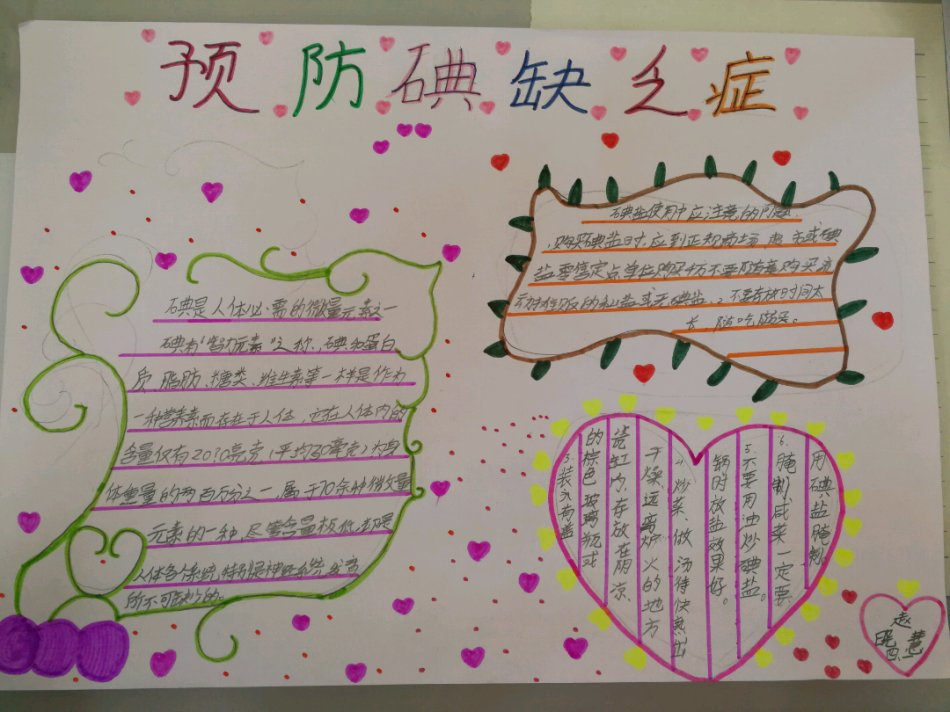 预防碘缺乏症
碘是人体必需的微量元素之一
碘有“智力元素”之称,碘和蛋白
质、脂肪、糖类、维生素等一样是作为
一种营养素而存在于人体,它在人体内的
含量仅有2010毫克(平均30毫克)为身
体重量的两百万分之一,属于70余种微量
元素的一种,尽管含量极低,却是
人体各个系统,特别是神经系统发育
所不可缺少的。
碘盐使用中应注意的问题
购买碘盐时,应到正规商场,超市或碘
盐零售定点单位购买,千万不要随意购买流
动摊贩的私盐或无碘盐.2.不要存放时间太
长,随吃随买。
3.装入有盖
的棕色玻璃瓶或
瓷缸内,存放在阴凉、
干燥、远离炉火的地方
4.炒菜、做汤待快熟出
锅时放盐效果好。
5.不要用油炒碘盐。
6.腌制咸菜一定要
用碘盐腌制
赵
晓慧